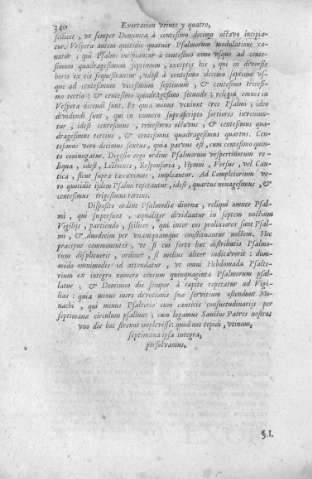 340 Exortacion veinte y quatro,
scilicet, ut semper Dominica à centesimo decimo octavo incipia-
tur. Vespera autem quotidie quatuor Psalmorum modulatione ca-
natur; qui Psalmi incipiantur à centesimo nono usque ad cente-
simum quadragesimum septimum, exceptis his, qui in diversis
horis ex eis sequestrantur, idest à centesimo decimo septimo us-
que ad centesimum vicesimum septimum, & centesimo trigesi-
mo tertio, & centesimo quadragesimo secundo; reliqui omnes in
Vespera dicendi sunt. Et quia minus veniunt tres Psalmi, ideo
dividendi sunt, qui in numero suprascripto fortiores inveniun-
tur, idest centesimus, trigesimus octavus, & centesimus qua-
dragesimus tertius, & centesimus quadragesimus quartus. Cen-
tesimus vero decimus sextus, quia parvus est, cum centesimo quin-
to coniungatur. Digesto ergo ordine Psalmorum vespertinorum re-
liqua, idest, Lectiones, Responsoria, Hymni, Versus, vel Can-
tica, sicut supra taxavimus, impleantur. Ad Completorium ve-
ro quotidie idem Psalmi repetantur, idest, quartus nonagesimus, &
centesimus trigesimus tertius.
Disposito ordine Psalmodia diurna, reliqui omnes Psal-
mi, qui supersunt, equaliter dividantur in septem noctium
Vigilias, partiendo, scilicet, qui inter eos prolixiores sunt Psal-
mi, & duodecim per unamquamque constituantur noctem. Hoc
præcipue commonentes, ut si cui forte hæc distributio Psalmo-
rum displicuerit, ordinet, si melius aliter iudicaverit: dum-
modo omnimodis id attendatur, ut omni Hebdomada Psalte-
rium ex integro numero centum quinquaginta Psalmorum psal-
latur; & Dominico die semper à capite repetatur ad Vigi-
lias: quia minus iners devotionis sua servitium ostendunt Mo-
nachi, qui minus Psalterio cum canticis consuetudinarijs per
septimana circulum psallunt: cum legamus Sanctos Patres nostros
uno die hoc strenue implevisse, quod nos tepidi, utinam,
septimana ipsa integra,
persolvamus.
§.I.